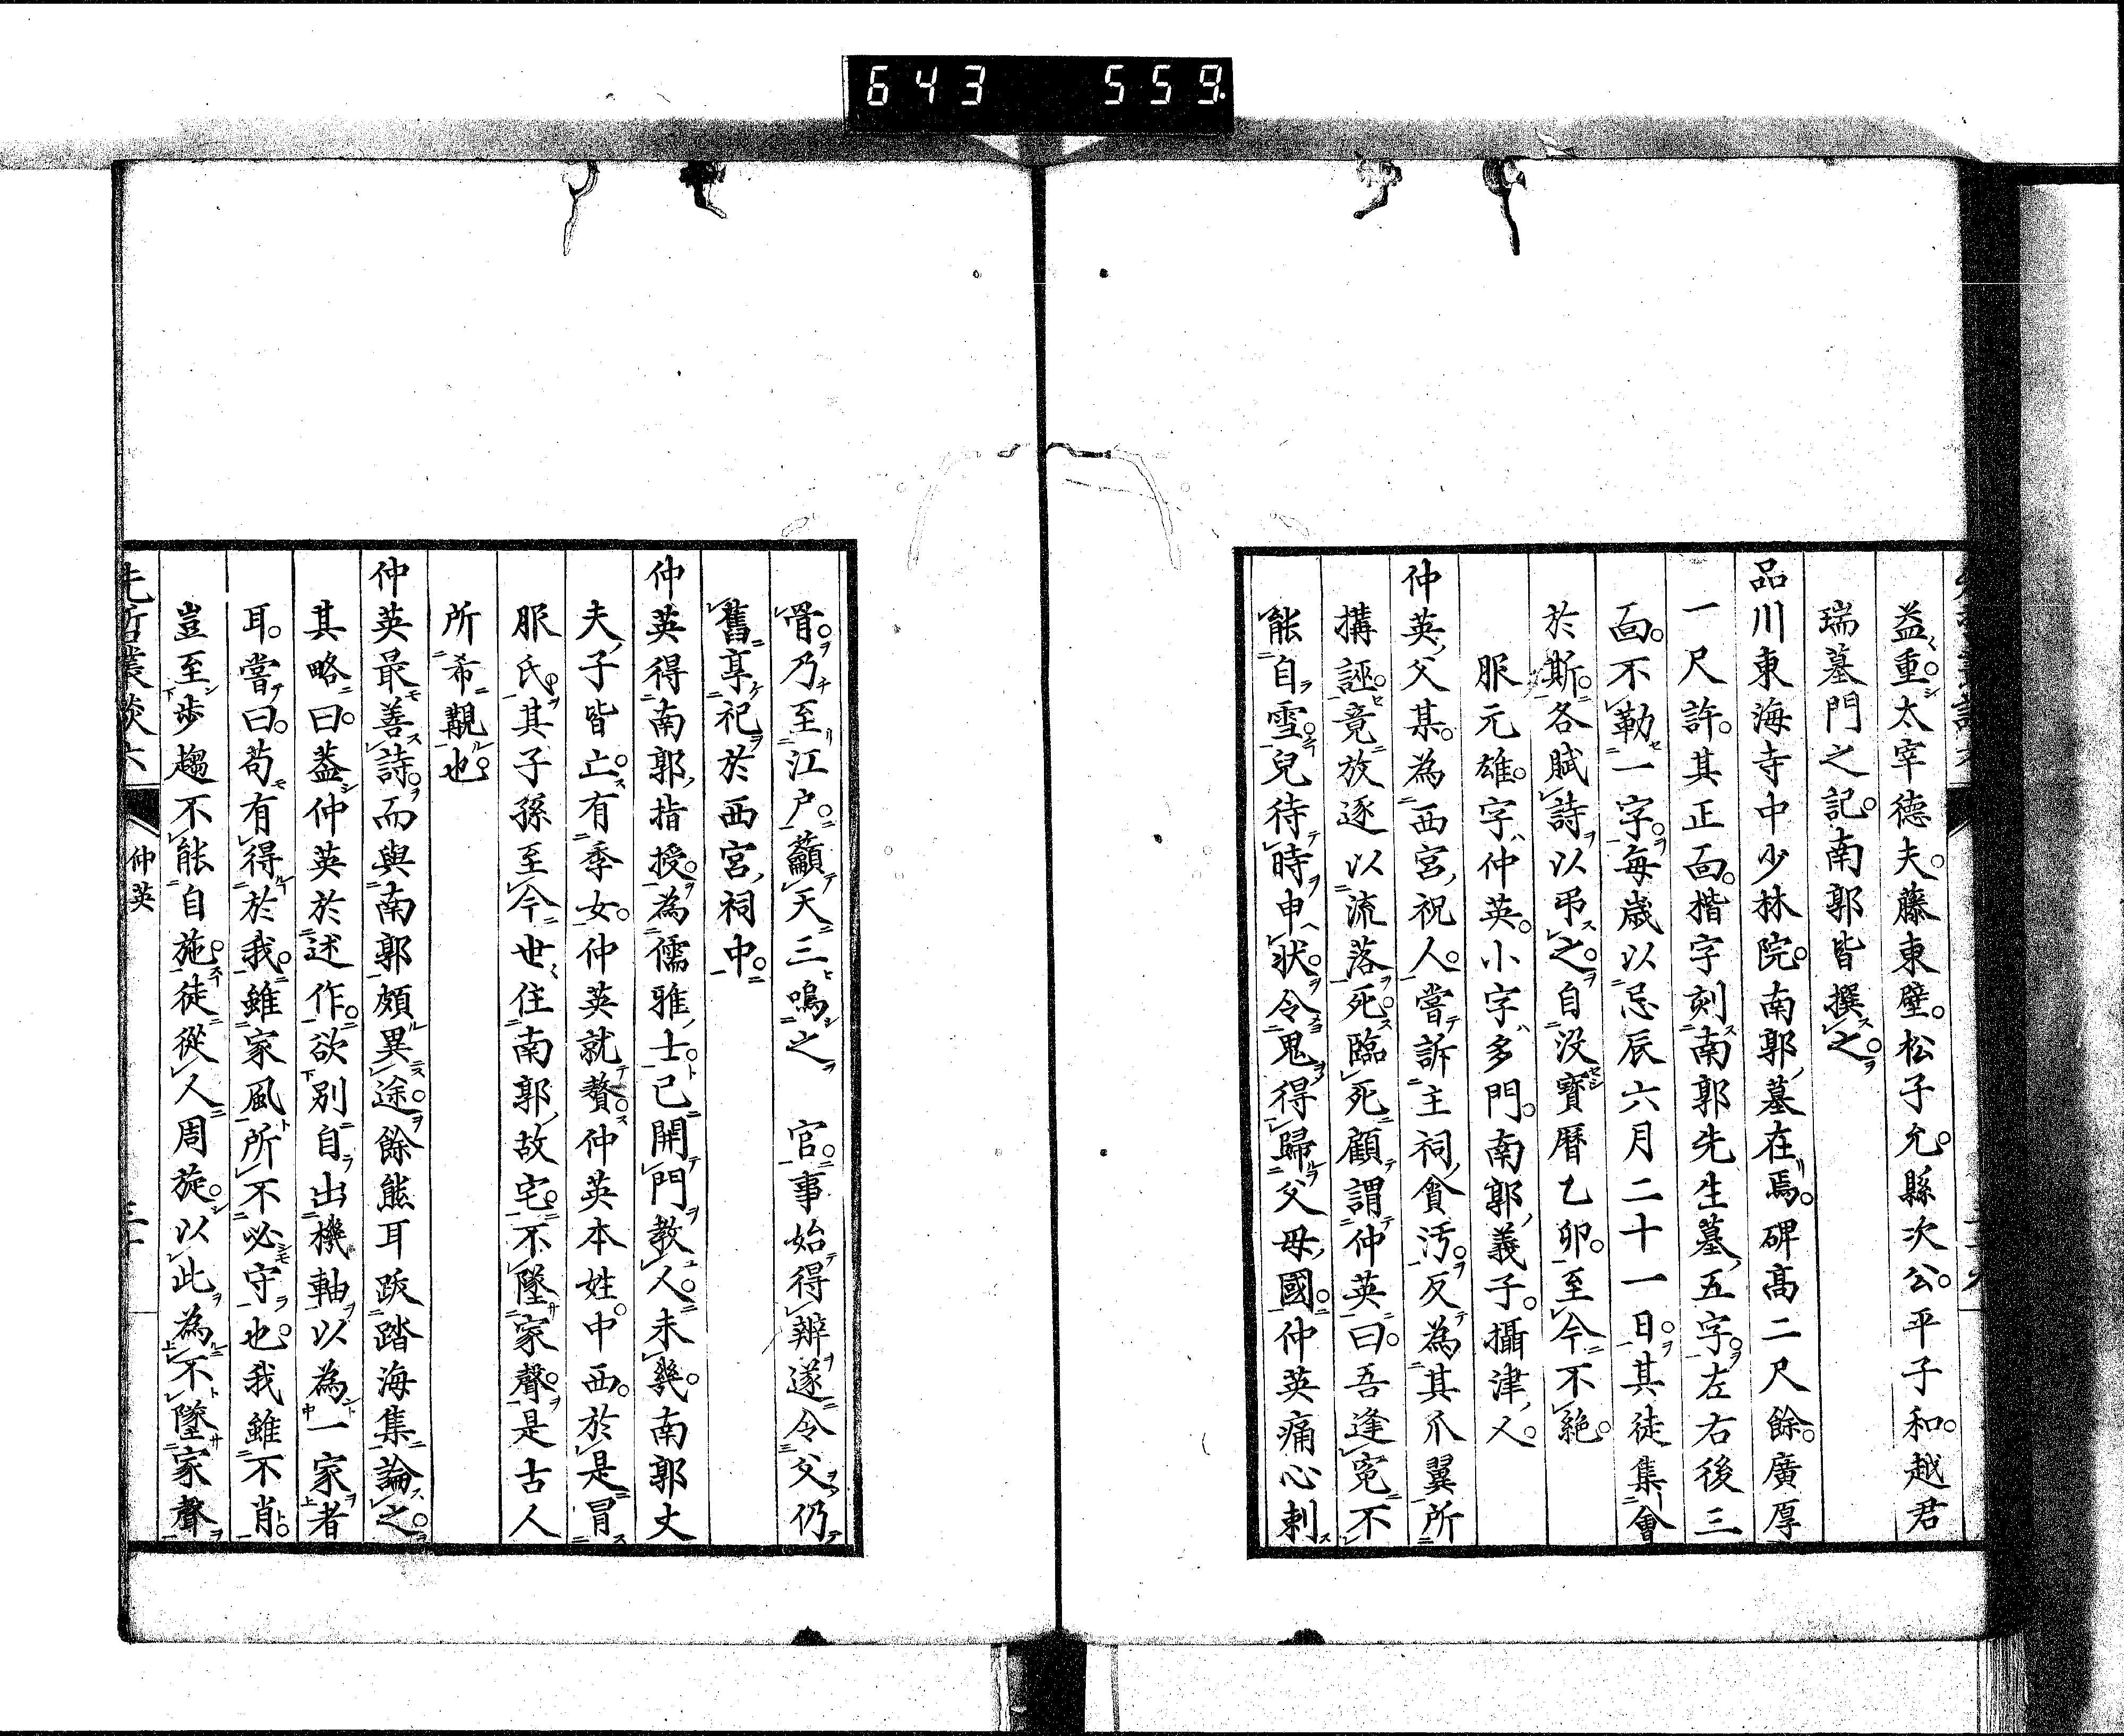 643 559
益重太宰德夫。藤東壁。松子允。縣次公。平子和。越君
瑞墓門之記。南郭皆撰之。
品川東海寺中少林院。南郭墓在焉。碑高二尺餘。廣厚
一尺許。其正面。楷字刻南郭先生墓五字。左右後三
面。不勒一字。每歲以忌辰六月二十一日。其徒集會
於斯。各賦詩以弔之。自沒寶曆乙卯。至今不絕。
服元雄。字仲英。小字多門。南郭義子。攝津人。
仲英父某。為西宮祝人。嘗訴主祠貪汚。反為其爪翼所
搆誣。竟放逐以流落死。臨死顧謂仲英曰。吾逢寃不
能自雪。兒待時申狀。令鬼得歸父母國。仲英痛心刺
骨。乃至江戶。籲天三鳴之 官。事始得辨。遂令父仍
舊享祀於西宮祠中。
仲英得南郭指授。為儒雅士。已開門教人。未幾。南郭丈
夫子皆亡。有季女。仲英就贅。仲英本姓。中西。於是冒
服氏。其子孫至今世住南郭故宅。不墜家聲。是古人
所希覯也。
仲英最善詩。而與南郭頗異途。餘熊耳跋踏海集論之。
其略曰。蓋仲英於述作。欲別自出機軸以為一家者
耳。嘗曰。苟有得於我。雖家風所不必守也。我雖不肖。
豈至步趨不能自施。徒從人周旋。以此為不墜家聲
先哲叢談六
仲英
三十